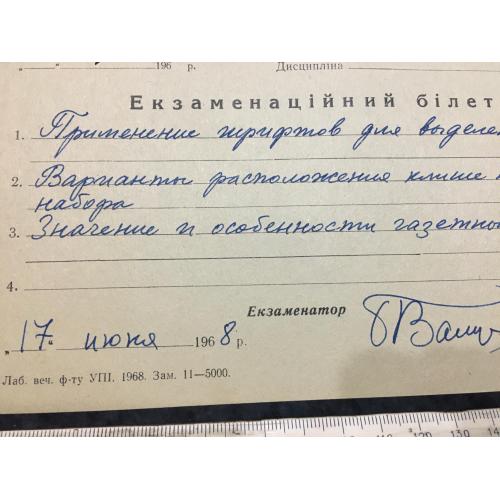 196 р. Дисципліна
Екзаменаційний білет
1. Применение шрифтов для выделе
2. Варианты расположения клише
набора
3. Значение и особенности газетно
4.
Екзаменатор
„17“ июня 1968 р.
Лаб. веч. ф-ту УПІ. 1968. Зам. 11—5000.
120 130 140